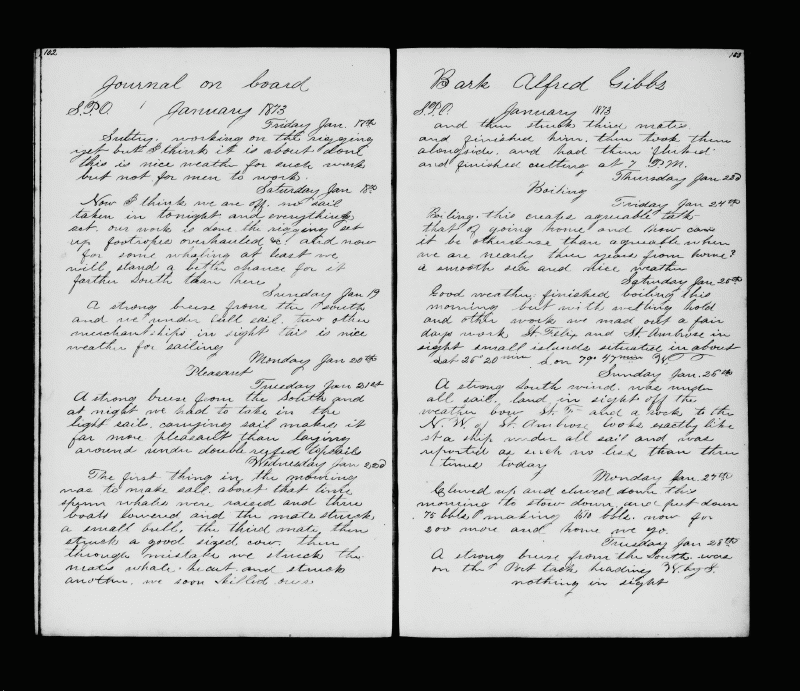 102
Journal on board
S.P.O. January 1873
Friday Jan. 17th
Sultry. working on the rigging
yet but I think it is about done
this is nice weath for such work
but not for men to work.
Saturday Jan 18th
Now I think we are off. no sail
taken in tonight and everything
set. our work is done. the rigging set
up footropes overhauled &c. and now
for some whaling at least we
will stand a better chance for it
farther South than here
Sunday Jan 19
A strong breese from the south
and we under full sail. two other
merchant-ships in sight this is nice
weather for sailing
Monday Jan 20th
Pleasant
Tuesday Jan 21st
A strong breese from the South and
at night we had to take in the
light sails. carrying sail makes it
far more pleasant than laying
around under double reefed topsails
Wednesday Jan 22d
The first thing in the morning
was to make sail. about that time
sperm whales were raised and three
boats lowered and the mate struck
a small bull, the third mate then
struck a good sized cow. then
through mistake we struck the
mates whale. he cut and struck
another. we soon killed ours
103
Bark Alfred Gibbs
S.P.O. January 1873
and then struck third mates
and finished him, then took them
alongside. and had them fluked.
and finished cutting at 7 P.M.
Thursday Jan 23d
Boiling
Friday Jan 24th
Boiling. this creates agreable talk
that of going home and how can
it be otherwise than agreable when
we are nearly three years from home?
a smooth sea and nice weather
Saturday Jan 25th
Good weather, finished boiling this
morning but with wetting hold
and other work we mad out a fair
days work. St Felix and St. Ambrose in
sight small islands situated in about
Lat 26° 20 min Lon 79° 47 min W
Sunday Jan. 26th
A strong South wind. was under
all sail. land in sight off the
weather bow. St. F and a rock to the
N. W. of St. Ambrose looks exactly like
at a ship under all sail and was
reported as such no less than three
times today
Monday Jan. 27th
Clewed up and clewed down this
morning to stow down, and put down
75 bbls making bbls. now for
200 more and home we go.
Tuesday Jan 28th
A strong breese from the South. was
on the Port tack heading W. by S.
nothing in sight